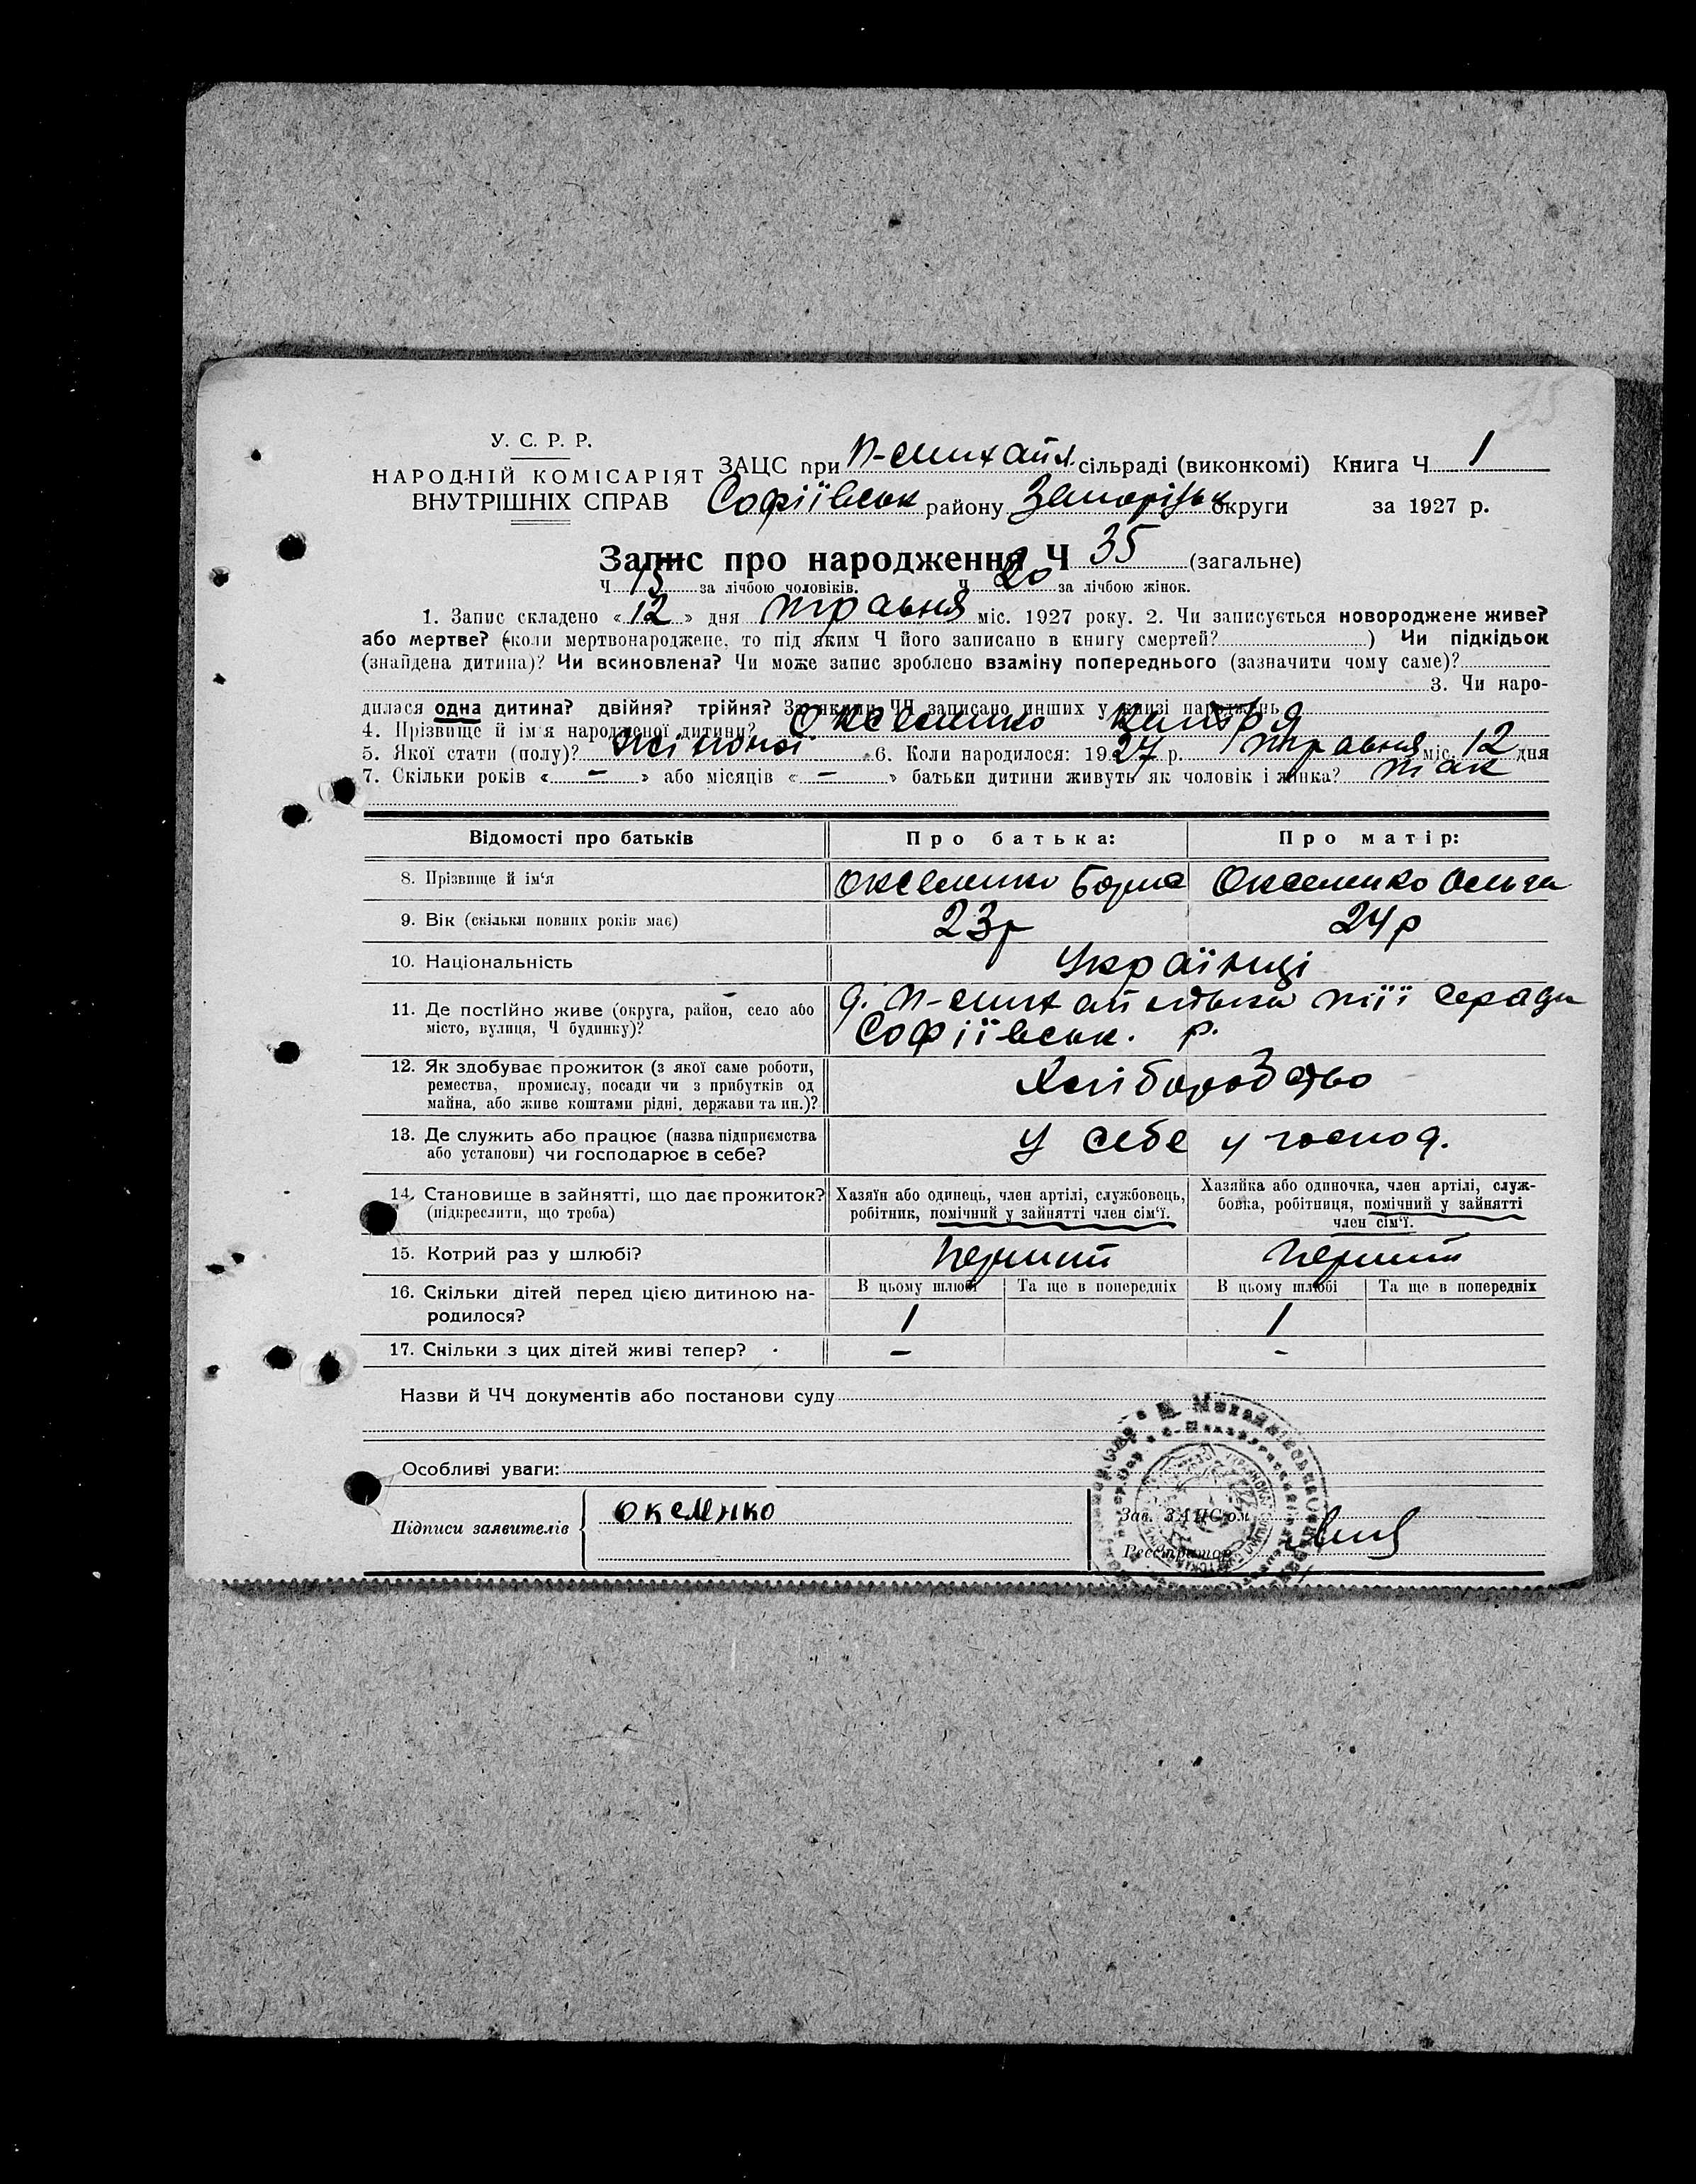 35
У. С. Р. Р.
НАРОДНІЙ КОМІСАРІЯТ
ВНУТРІШНІХ СПРАВ
ЗАЦС при П-Михайл. сільраді (виконкомі) Книга Ч 1
Софіївськ району Запоріжськ округи за 1927 р.
Запис про народження Ч 35 (загальне)
Ч 15 за лічбою чоловіків. Ч 20 за лічбою жінок.
1. Запис складено «12» дня травня міс. 1927 року. 2. Чи записується новороджене живе?
або мертве? (коли мертвонароджене, то під яким Ч його записано в книгу смертей? ) Чи підкідьок
(знайдена дитина)? Чи всиновлена? Чи може запис зроблено взаміну попереднього (зазначити чому саме)?
3. Чи наро-
дилася одна дитина? двійня? трійня? За якими ЧЧ записано инших у книзі народжень
4. Прізвище й ім'я народженої дитини? Оксененко
5. Якої стати (полу)? жіночої 6. Коли народилося: 1927 р. травня міс. 12 дня
7. Скільки років « – » або місяців « – » батьки дитини живуть як чоловік і жінка? так
Відомості про батьків Про батька: Про матір:
8. Прізвище й ім'я Оксененко Борис Оксененко Ольга
9. Вік (скільки повних років має) 23р 24р
10. Національність Українці
11. Де постійно живе (округа, район, село або
місто, вулиця, Ч будинку)?
П-Михайлівка тії Сяради
Софіївськ. р.
12. Як здобуває прожиток (з якої саме роботи,
ремества, промислу, посади чи з прибутків од
майна, або живе коштами рідні, держави та ин.)?
Хліборобство
13. Де служить або працює (назва підприємства
або установи) чи господарює в себе?
у себе у господ.
14. Становище в зайнятті, що дає прожиток?
(підкреслити, що треба)
Хазяїн або одинець, член артілі, службовець,
робітник, помічний у зайнятті член сім'ї.
Хазяйка або одиночка, член артілі, служ-
бовка, робітниця, помічний у зайнятті
член сім'ї.
15. Котрий раз у шлюбі? перший перший
16. Скільки дітей перед цією дитиною на-
родилося?
В цьому шлюбі Та ще в попередніх В цьому шлюбі Та ще в попередніх
1 1
17. Скільки з цих дітей живі тепер? – –
Назви й ЧЧ документів або постанови суду
Особливі уваги:
Підписи заявителів оксмнко
Зав. ЗАЦС'ом
Реєстратор